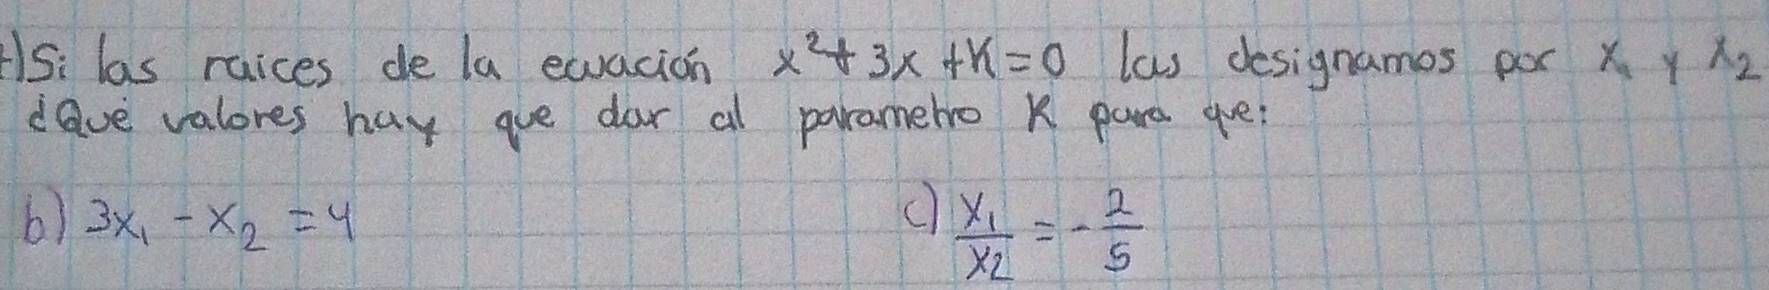 )Si las raices de la ecuación x²+3x+K=0 las designamos por x₁ y x₂
¿Qué valores hay que dar al parametro K para que:
b) 3x₁ - x₂ = 4
c) x₁/x₂ = - 2/5